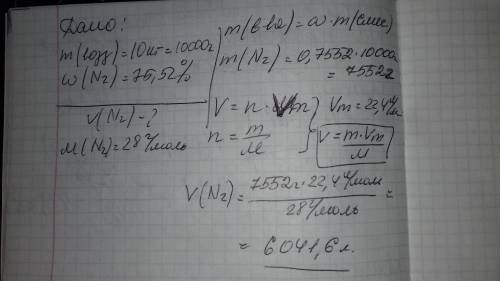 Дано:
m(возд)=10кг=10000г
ω(N₂)=75,52%
V(N₂)-?
M(N₂)=28г/моль
m(в-ва)=ω·m(смеси)
m(N₂)=0,7552·10000
=7552г
V=n·Vm
n=m/M
Vm=22,4л/м
V=m·Vm/M
V(N₂)=7552г·22,4л/моль/28г/моль=
=6041,6л.